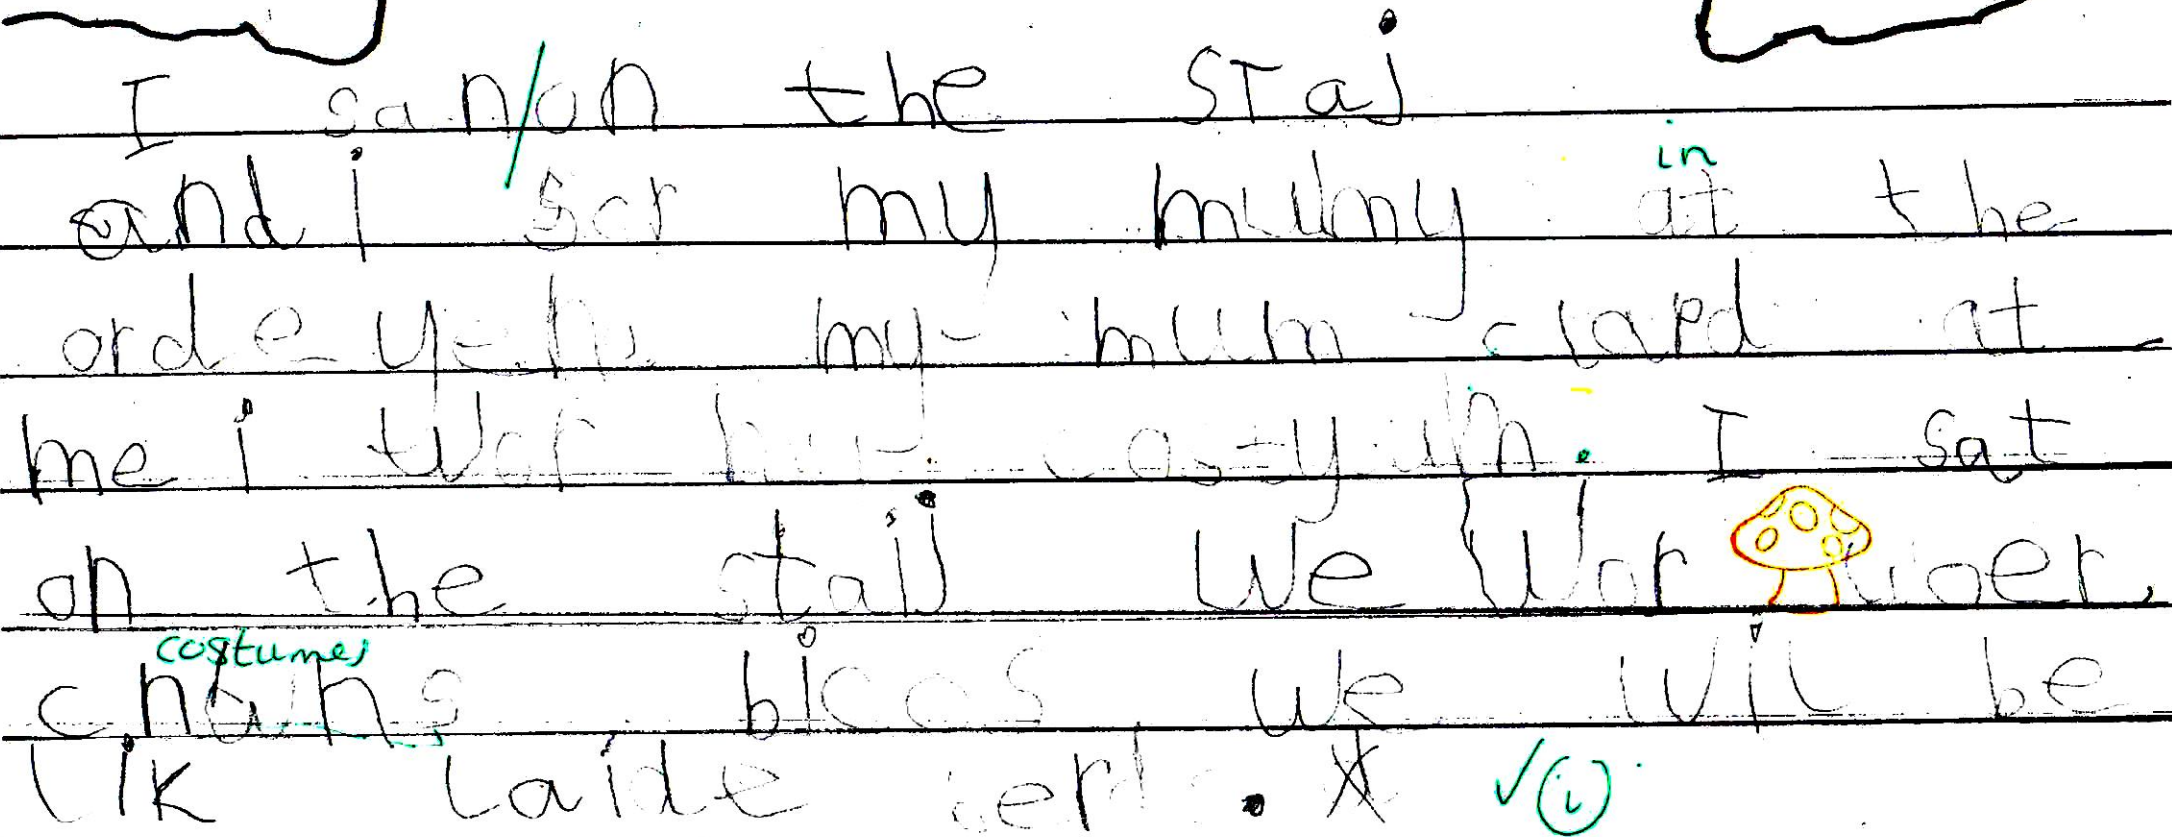 I san/on the staj
in
and i sor my mumy at the
orde yens my mum clapd at
me i wor hur costyum. I sat
on the staij we wor
costumes
bicos we wil be
lik laide